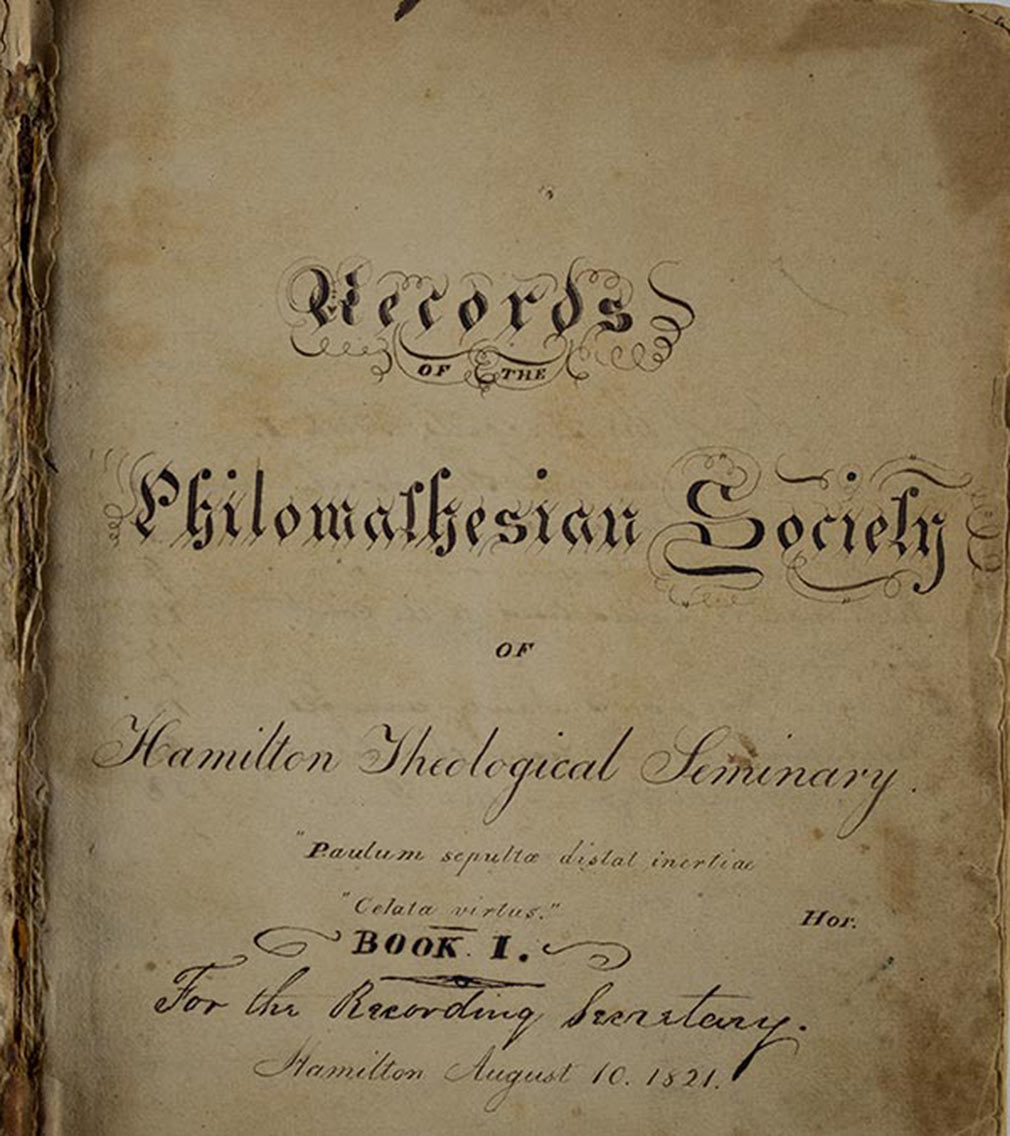 Records
OF THE
Philomathesian Society
OF
Hamilton Theological Seminary.
"Paulum sepultæ distat inertiae
"Celata virtus."
Hor.
BOOK I.
For the Recording Secretary.
Hamilton August 10. 1821.